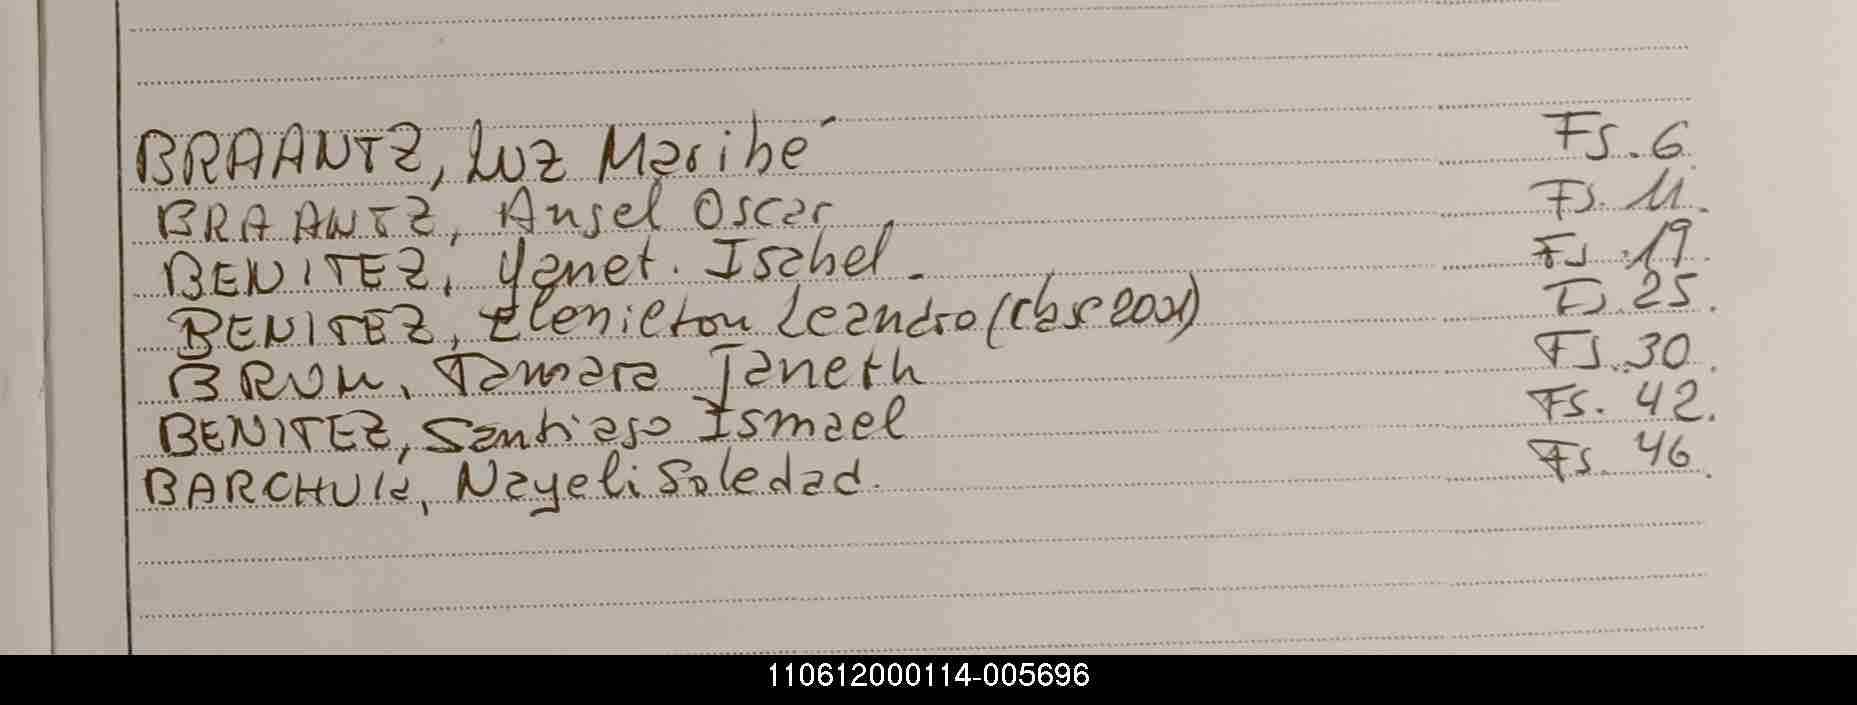 BRAANTZ, Luz Maribé Fs. 6
BRAANTZ, Angel Oscar Fs. 11.
BENITEZ, Yanet. Isabel. Fs. 19.
BENITEZ, Leandro Fs. 25.
BRUM, Tamara Janeth Fs. 30.
BENITEZ, Santiago Ismael Fs. 42.
BARCHUK, Nayeli Soledad. Fs. 46.
110612000114-005696